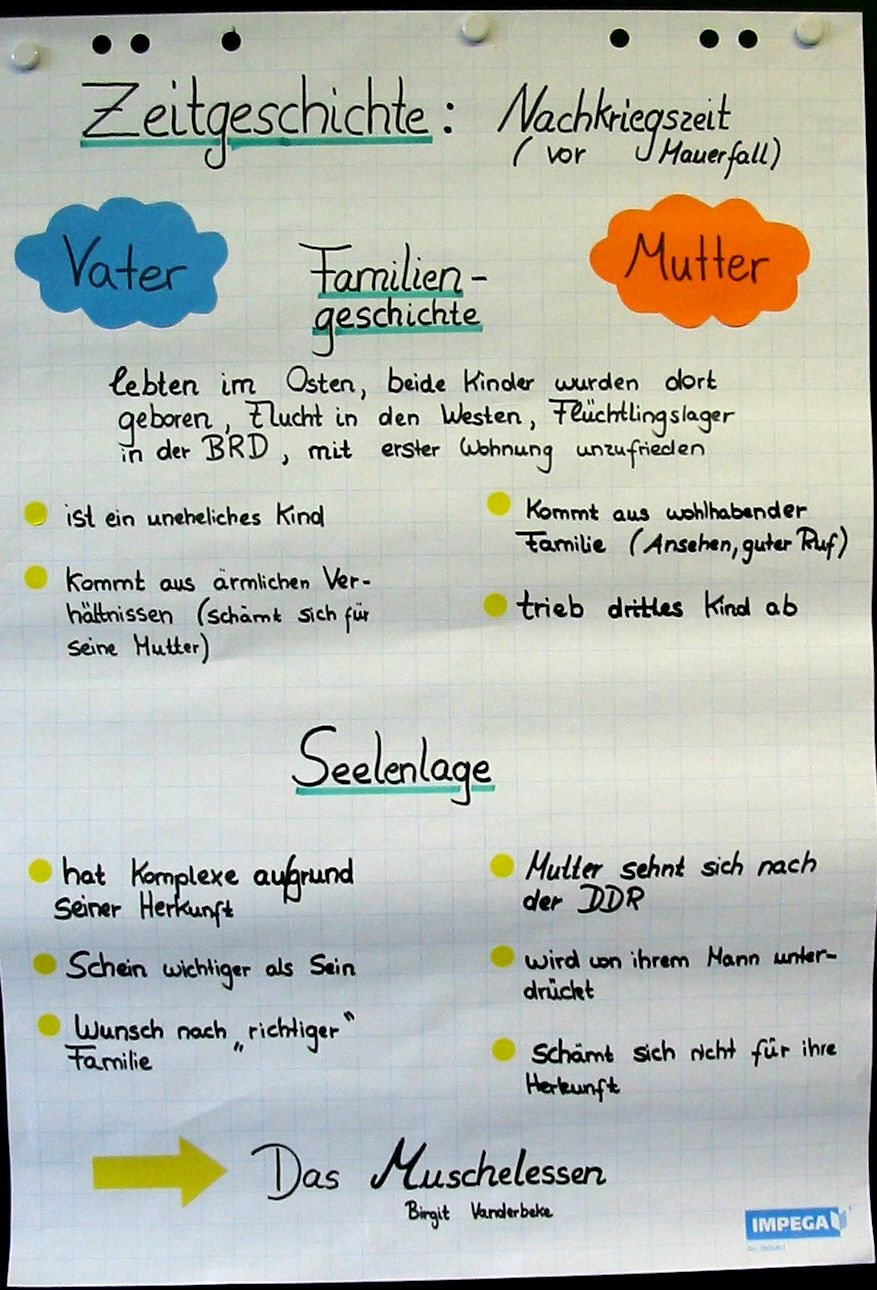 Zeitgeschichte: Nachkriegszeit
(vor Mauerfall)
Vater
Mutter
Familien-
geschichte
lebten im Osten, beide Kinder wurden dort
geboren, Flucht in den Westen, Flüchtlingslager
in der BRD, mit erster Wohnung unzufrieden
ist ein uneheliches Kind
Kommt aus ärmlichen Ver-
hältnissen (schämt sich für
seine Mutter)
Kommt aus wohlhabender
Familie (Ansehen, guter Ruf)
trieb drittes Kind ab
Seelenlage
hat Komplexe aufgrund
seiner Herkunft
Schein wichtiger als Sein
Wunsch nach „richtiger“
Familie
Mutter sehnt sich nach
der DDR
wird von ihrem Mann unter-
drückt
schämt sich nicht für ihre
Herkunft
Das Muschelessen
Birgit Vanderbeke
IMPEGA